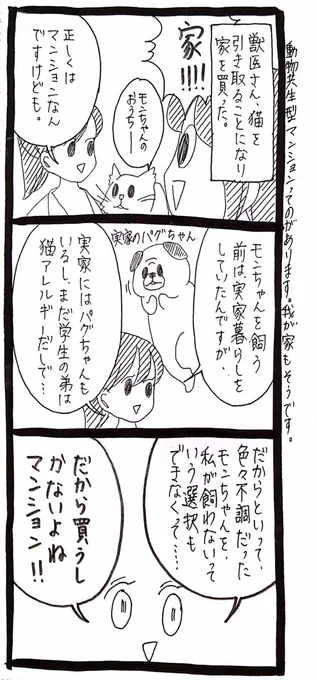 動物共生型マンションってのがあります。我が家もそうです。
獣医さん、猫を
引き取ることになり
家を買った。
家!!!!
モンちゃんの
おうちー
正しくは
マンションなん
ですけども。
モンちゃんを飼う
前は実家暮らしを
していたんですが、
実家のパグちゃん
実家にはパグちゃんも
いるし、まだ学生の弟は
猫アレルギーだしで…
だからといって、
色々不調だった
モンちゃんを、
私が飼わないって
いう選択も
できなくって…
だから買うし
かないよね
マンション!!